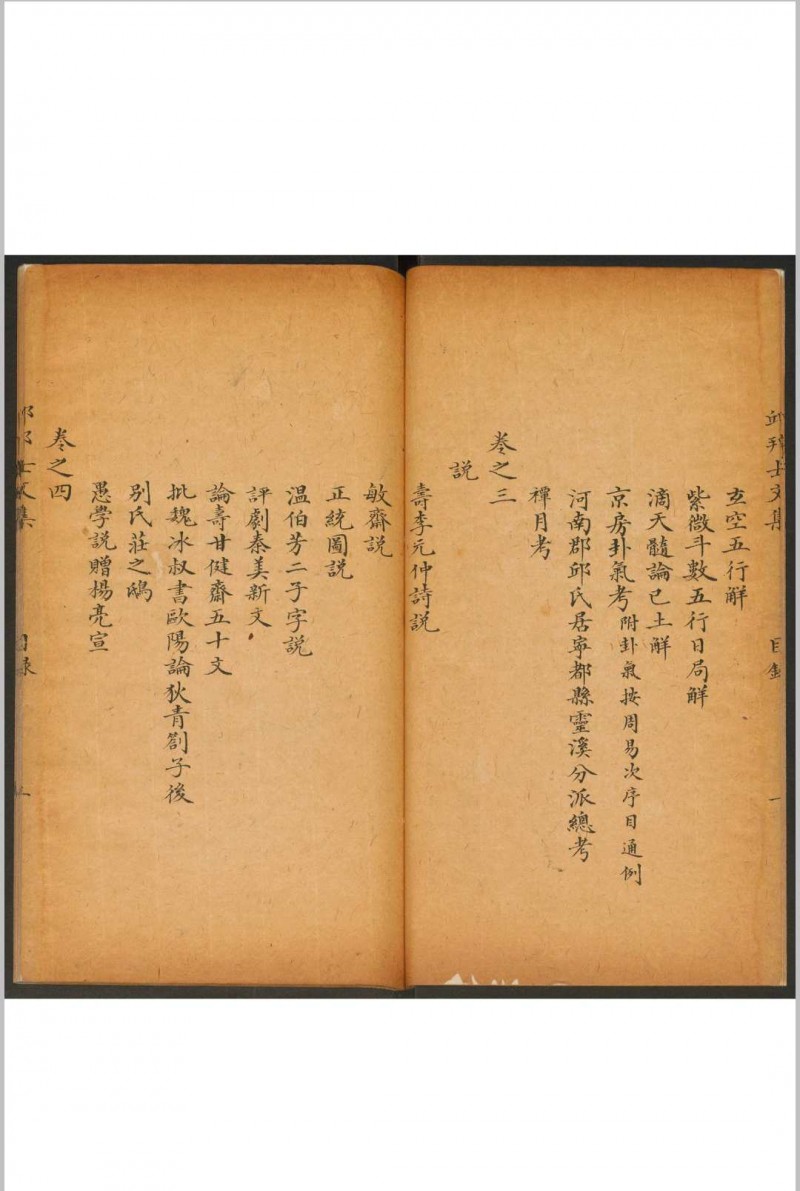 玄空五行解
紫微斗數五行日局解
滴天髓論已土解
京房卦氣考附卦氣按周易次序目通例
河南郡邱氏居寧都縣靈溪分派總考
禫月考
卷之三
說
壽李元仲詩説
敏齋説
正統圖説
温伯芳二子字説
評劇秦美新文
論壽甘健齋五十文
批魏冰叔書歐陽論狄青劄子後
別氏莊之鴟
愚學説贈楊亮宣
卷之四